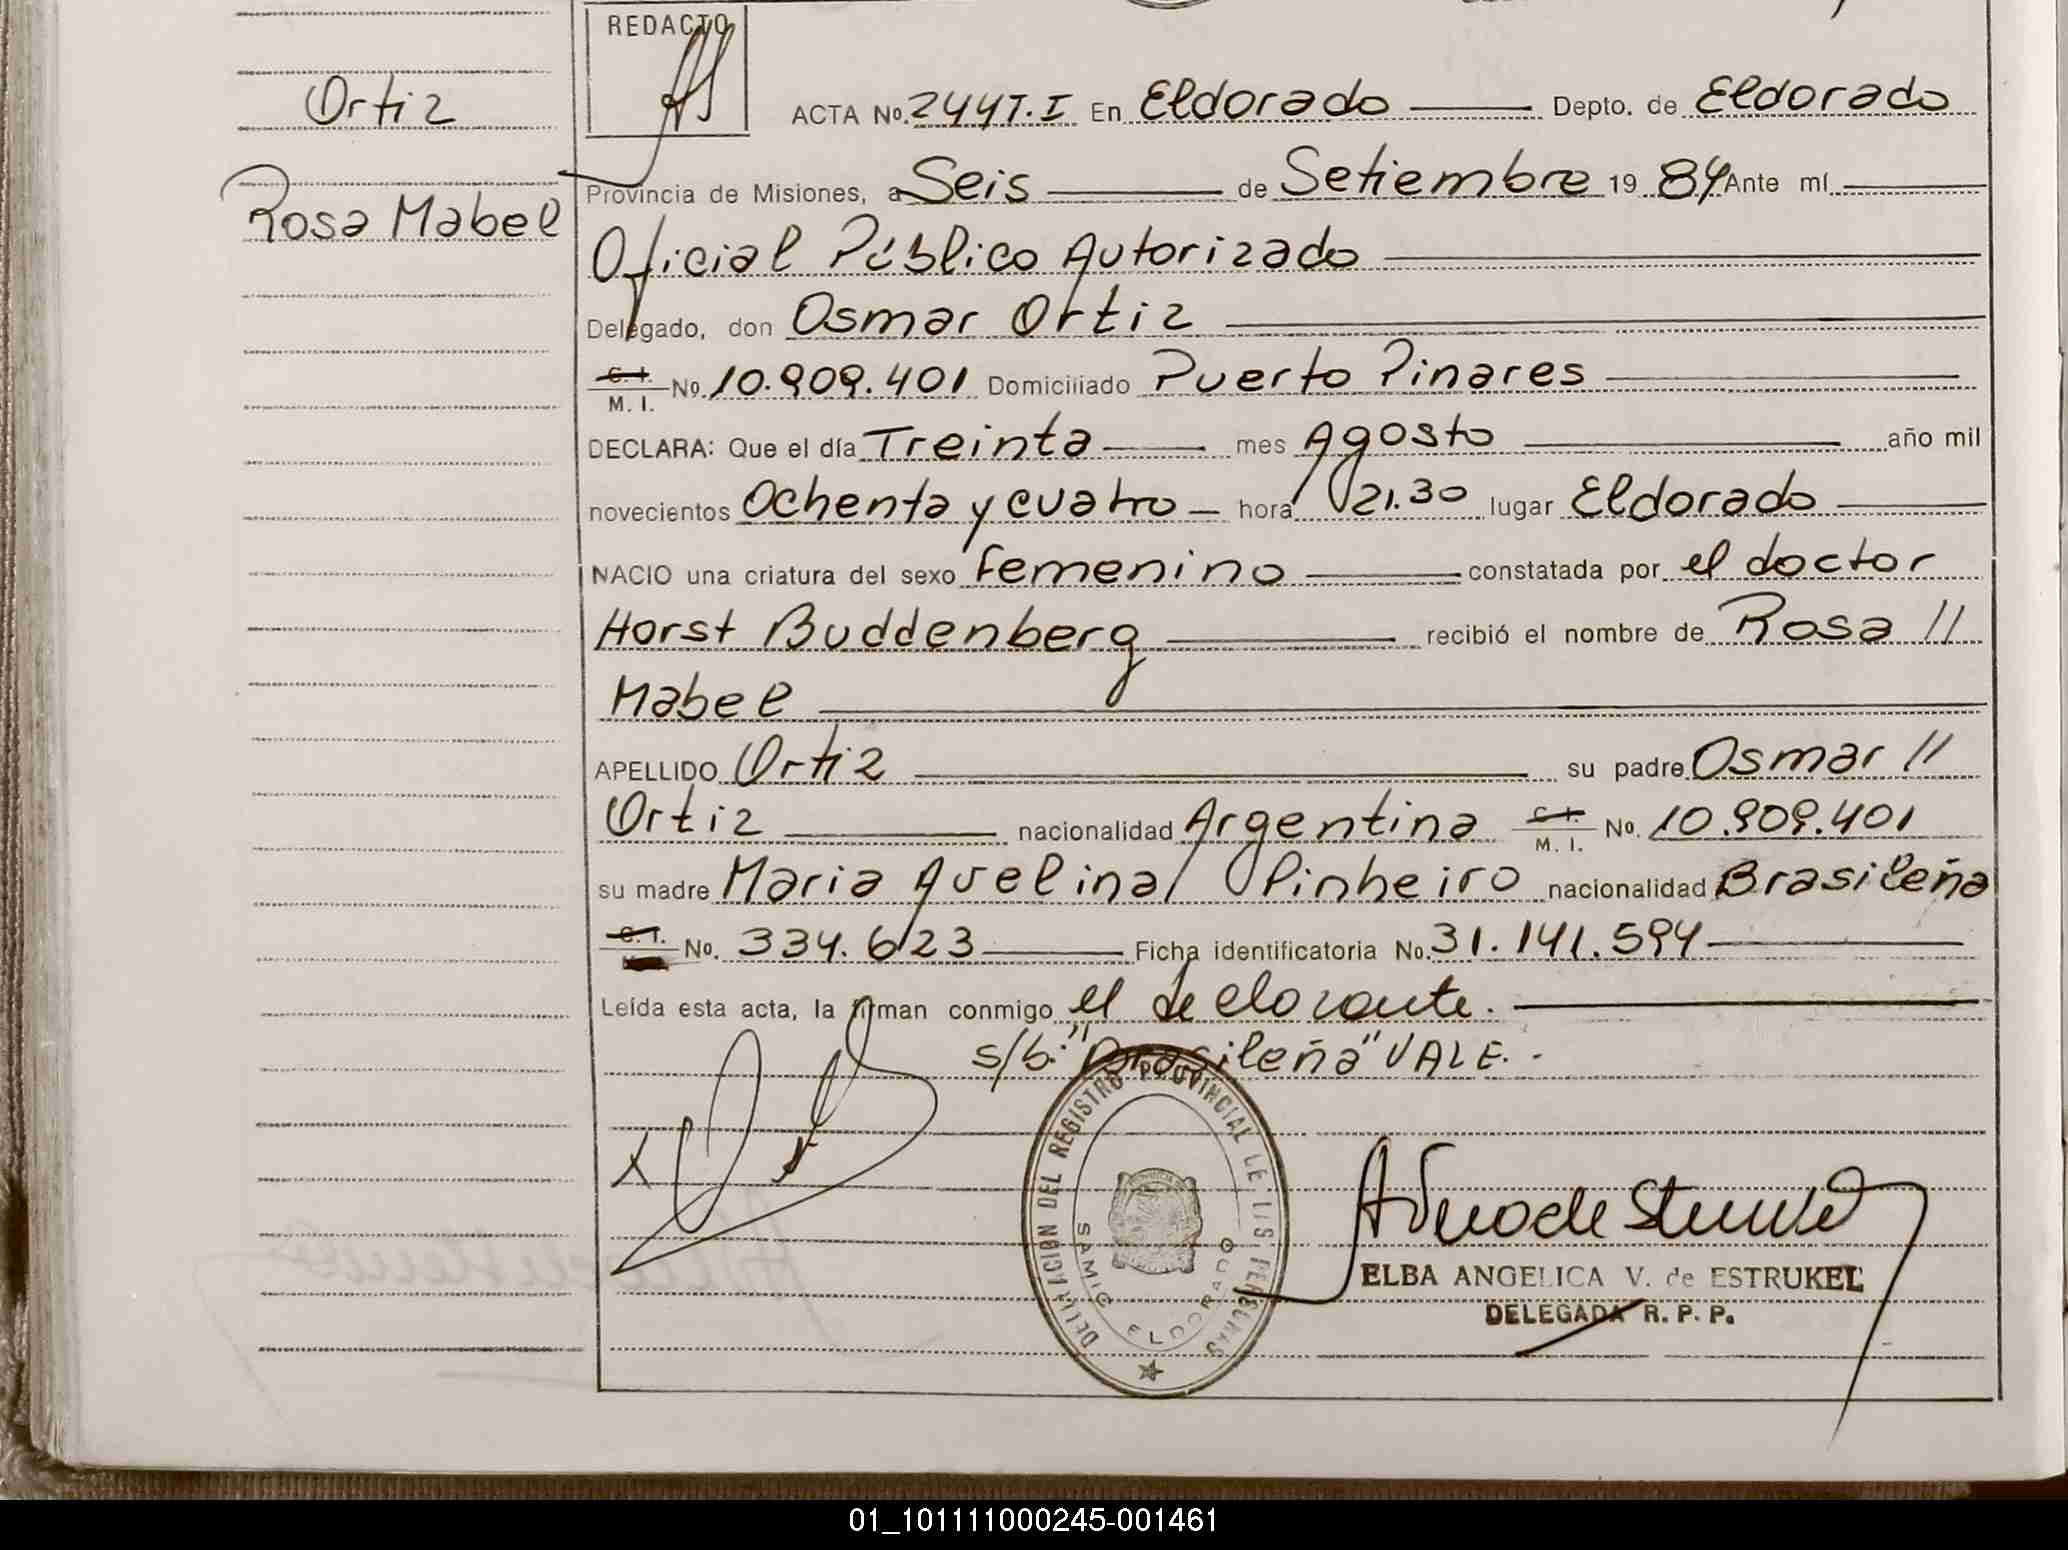 Ortiz
Rosa Mabel
REDACTO
ACTA No. 244 T.I En Eldorado Depto. de Eldorado
Provincia de Misiones, a Seis de Setiembre 19 84 Ante mí
Oficial Público Autorizado
Delegado, don Osmar Ortiz
C. I.
M. I. No. 10.909.401 Domiciliado Puerto Pinares
DECLARA: Que el día Treinta mes Agosto año mil
novecientos Ochenta y cuatro hora 21.30 lugar Eldorado
NACIO una criatura del sexo femenino constatada por el doctor
Horst Buddenberg recibió el nombre de Rosa //
Mabel
APELLIDO Ortiz su padre Osmar //
Ortiz nacionalidad Argentina C. I.
M. I. No. 10.909.401
su madre Maria Avelina Pinheiro nacionalidad Brasileña
C. I. No. 334.623 Ficha identificatoria No. 31.141.594
Leída esta acta, la firman conmigo el declarante.
s/b: "Brasileña" VALE.-
DELEGACION DEL REGISTRO PROVINCIAL DE LAS PERSONAS
ELDORADO
ELBA ANGELICA V. de ESTRUKEL
DELEGADA R. P. P.
01_101111000245-001461